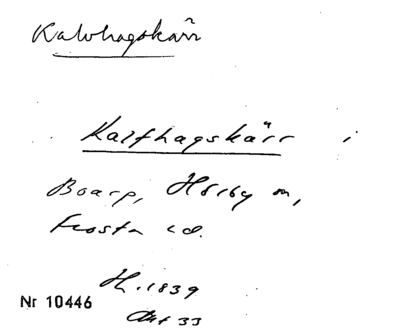 Kalvhagskärr
Kalfhagskärr i
Boarp, Hörby sn,
Frosta hd.
H. 1839
Nr 10446
Akt 33